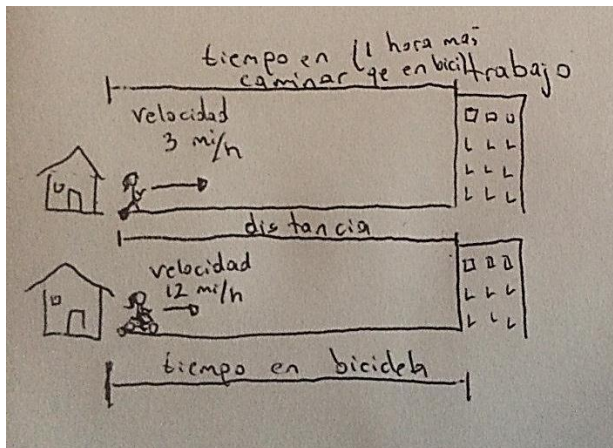 tiempo en (1 hora mas
caminar qe en bici)
trabajo
velocidad
3 mi/h
distancia
velocidad
12 mi/h
tiempo en bicicleta